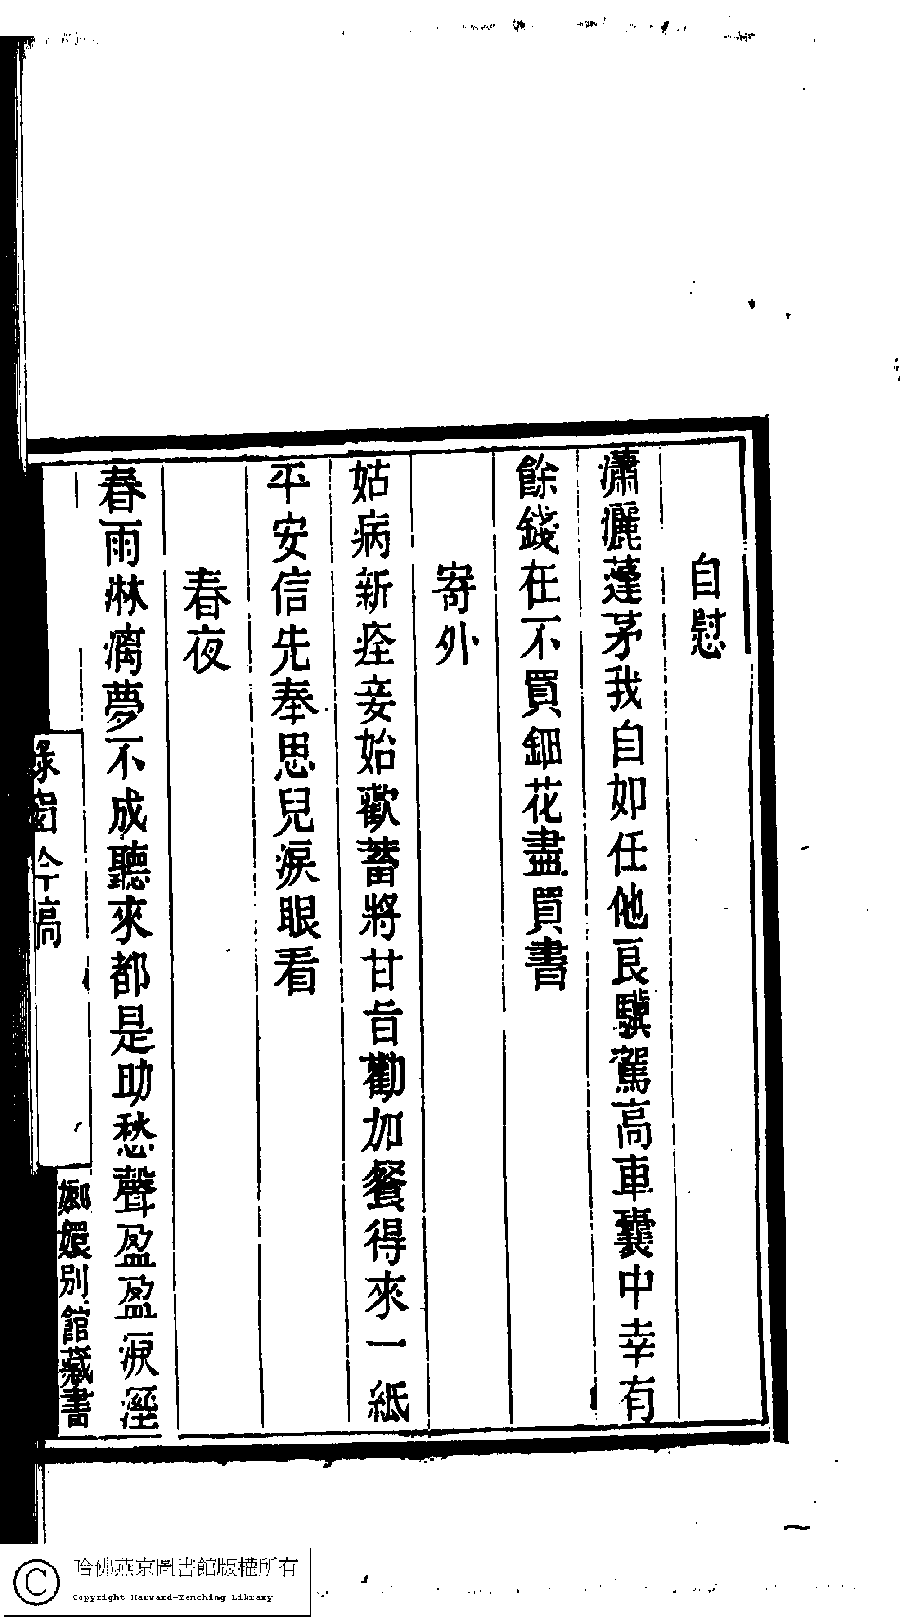 自慰
瀟灑蓬茅我自如任他良驥駕高車囊中幸有
餘錢在不買鈿花盡買書
寄外
姑病新痊妾始歡蓄將甘旨勸加餐得來一紙
平安信先奉思兒淚眼看
春夜
春雨淋漓夢不成聽來都是助愁聲盈盈淚溼
綠窗今稿
嫏嬛別館藏書
哈佛燕京圖書館版權所有
Copyright Harvard-Yenching Library